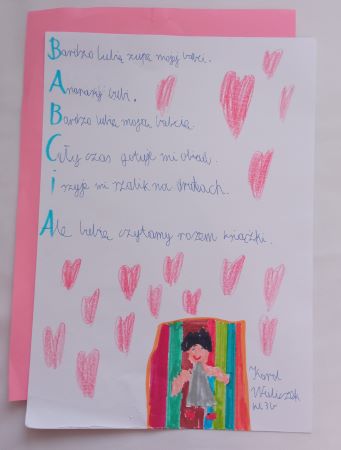 Bardzo lubię zupę mojej babci.
Ananasy lubi.
Bardzo lubię moją babcię.
Cały czas gotuje mi obiad.
i szyje mi szalik na drutach.
Ale lubię czytamy razem książki.
Karol
Waliczak
kl. 3b